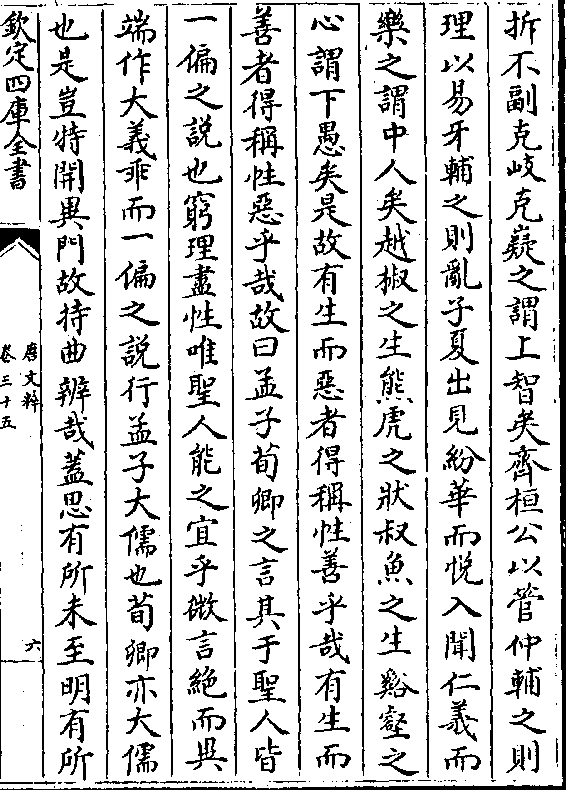 拆不副克岐克嶷之謂上智矣齊桓公以管仲輔之則
理以易牙輔之則亂子夏出見紛華而悅入聞仁義而
樂之謂中人矣越椒之生熊虎之狀叔魚之生谿壑之
心謂下愚矣是故有生而惡者得稱性善乎哉有生而
善者得稱性惡乎哉故曰孟子荀卿之言其于聖人皆
一偏之說也窮理盡性唯聖人能之宜乎微言絶而異
端作大義乖而一偏之說行孟子大儒也荀卿亦大儒
也是豈特開異門故持曲辨哉蓋思有所未至明有所
欽定四庫全書
唐文粹
卷三十五
六